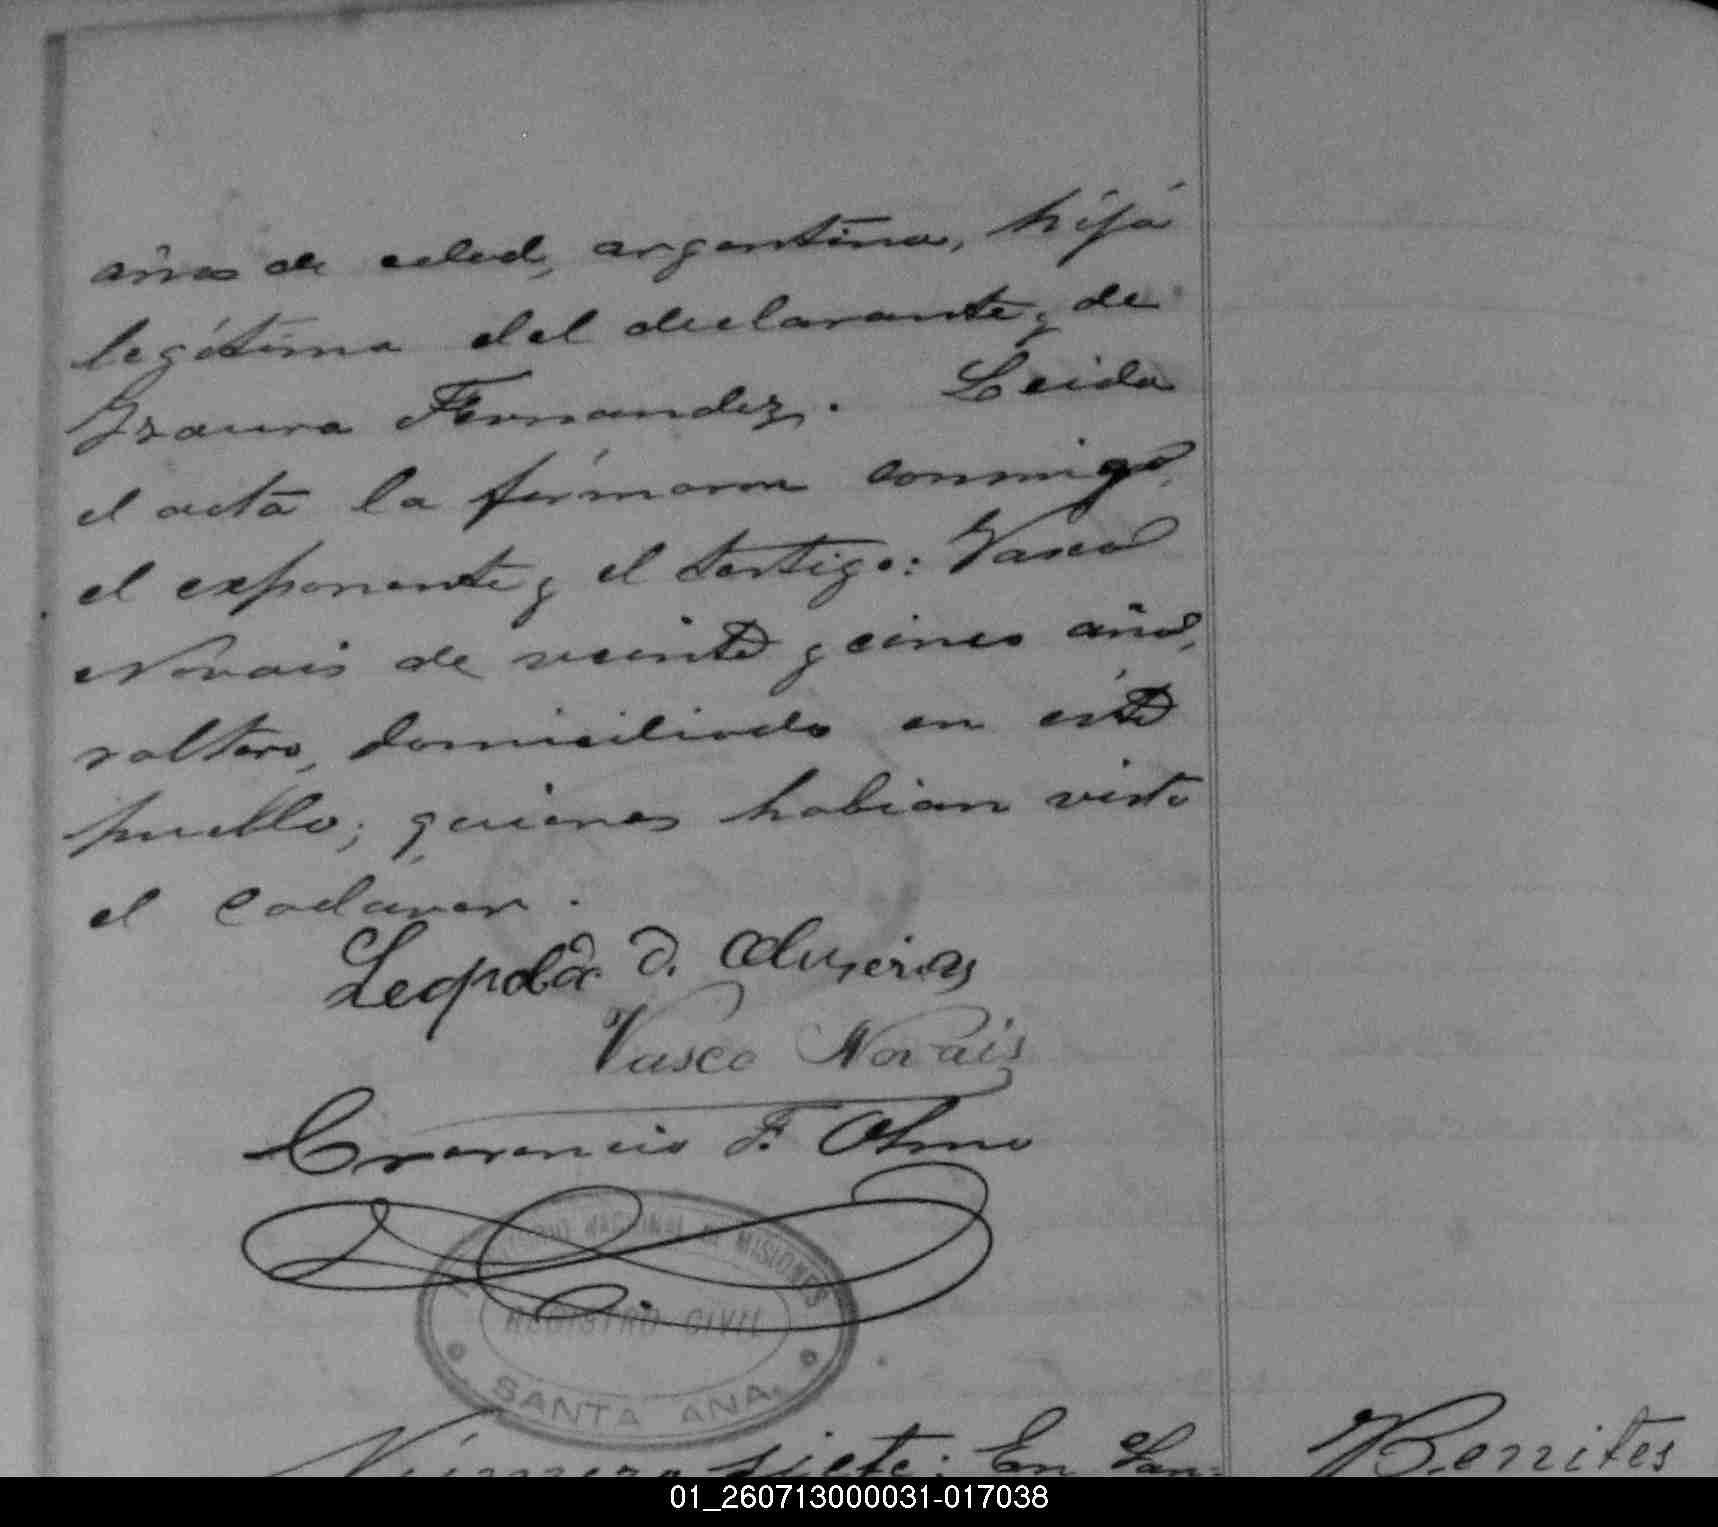 años de edad, argentina, hija
legítima del declarante y de
Isaura Fernandez. Leida
el acta la firmaron conmigo,
el exponente y el testigo: Vasco
Novais de veinte y cinco años,
soltero, domiciliado en éste
pueblo; quienes habian visto
el cadaver.
Leopoldo D.
Vasco Novais
F. Olmo
NACIONAL DE MISIONES
REGISTRO CIVIL
SANTA ANA
Número siete: En San-
Benites
01_260713000031-017038